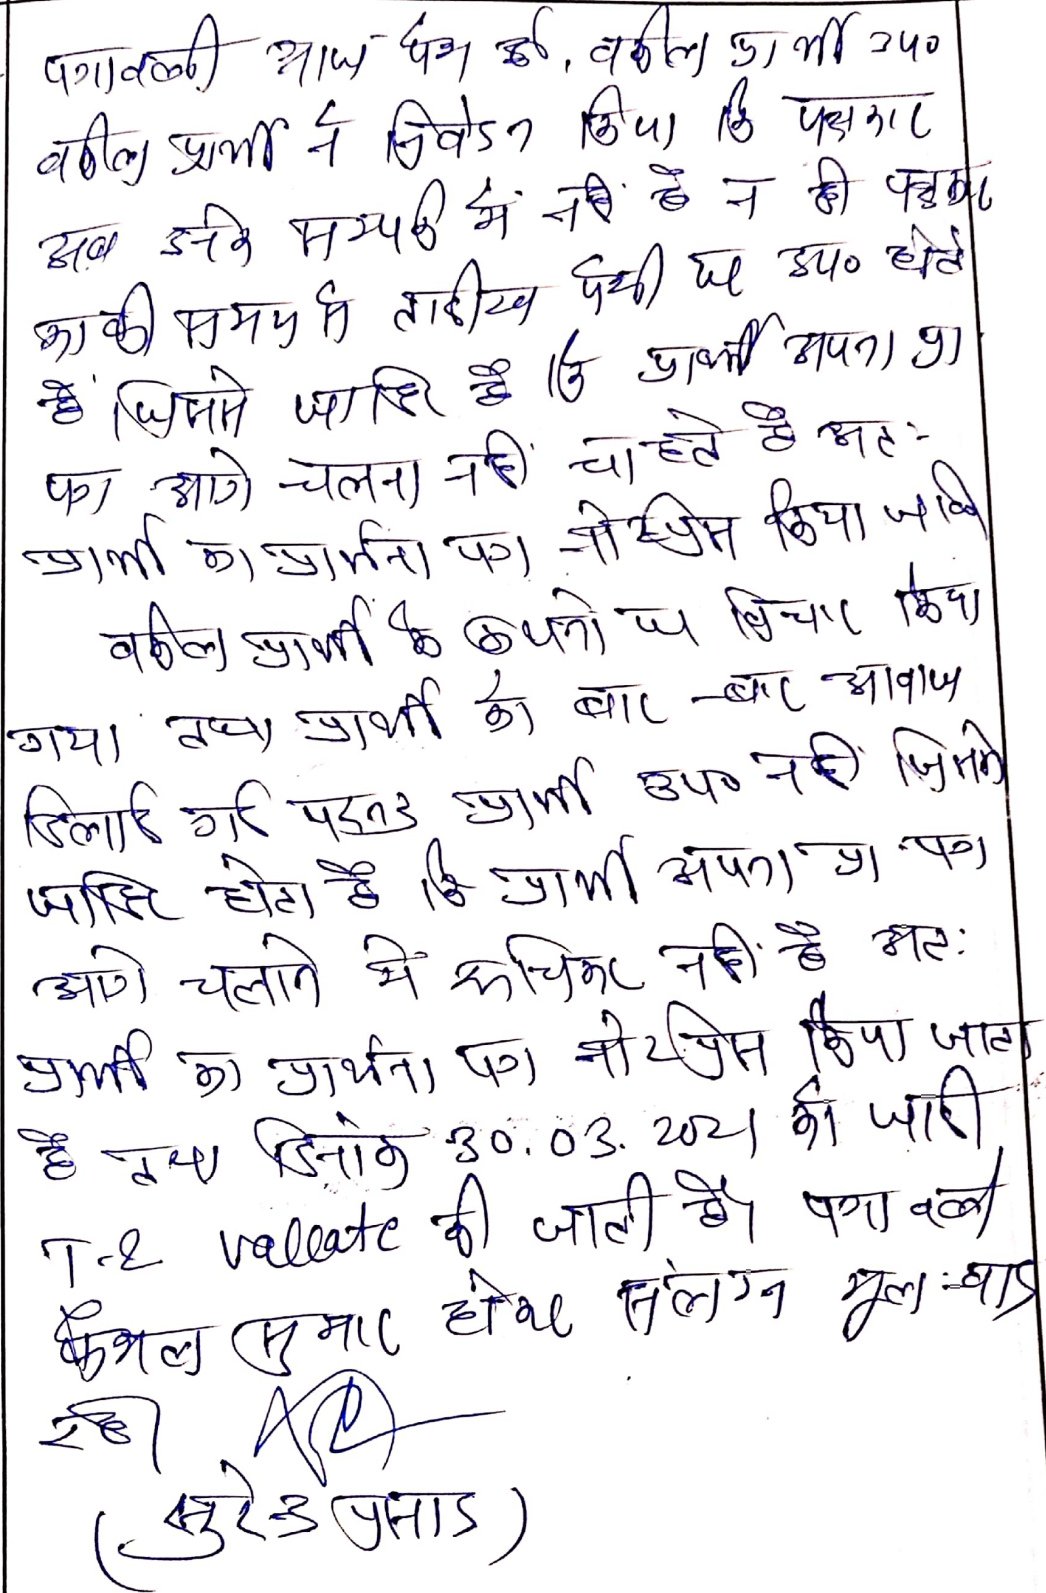 पत्रावली आज पेश हुई, वकील प्रार्थी उप०
वकील प्रार्थी ने निवेदन किया कि पक्षकार
अब उनके सम्पर्क में नहीं है न ही पक्षकार
काफी समय से तारीख पेशी पर उप० होते
हैं जिससे जाहिर है कि प्रार्थी अपना प्रा
पत्र आगे चलाना नहीं चाहते है अतः
प्रार्थी का प्रार्थना पत्र नोटप्रेस किया जावे
वकील प्रार्थी के कथनो पर विचार किया
गया तथा प्रार्थी को बार-बार आवाज
दिलाई गई परन्तु प्रार्थी उप० नहीं जिससे
जाहिर होता है कि प्रार्थी अपना प्रा पत्र
आगे चलाने में रूचिकर नहीं है अतः
प्रार्थी का प्रार्थना पत्र नोटप्रेस किया जाता
है तथा दिनांक 30.03.2021 को जारी
T-2 vallate की जाती है। पत्रावली
फैसल सुमार होकर संलग्न मूल वाद
रहे।
(सुरेन्द्र प्रसाद)